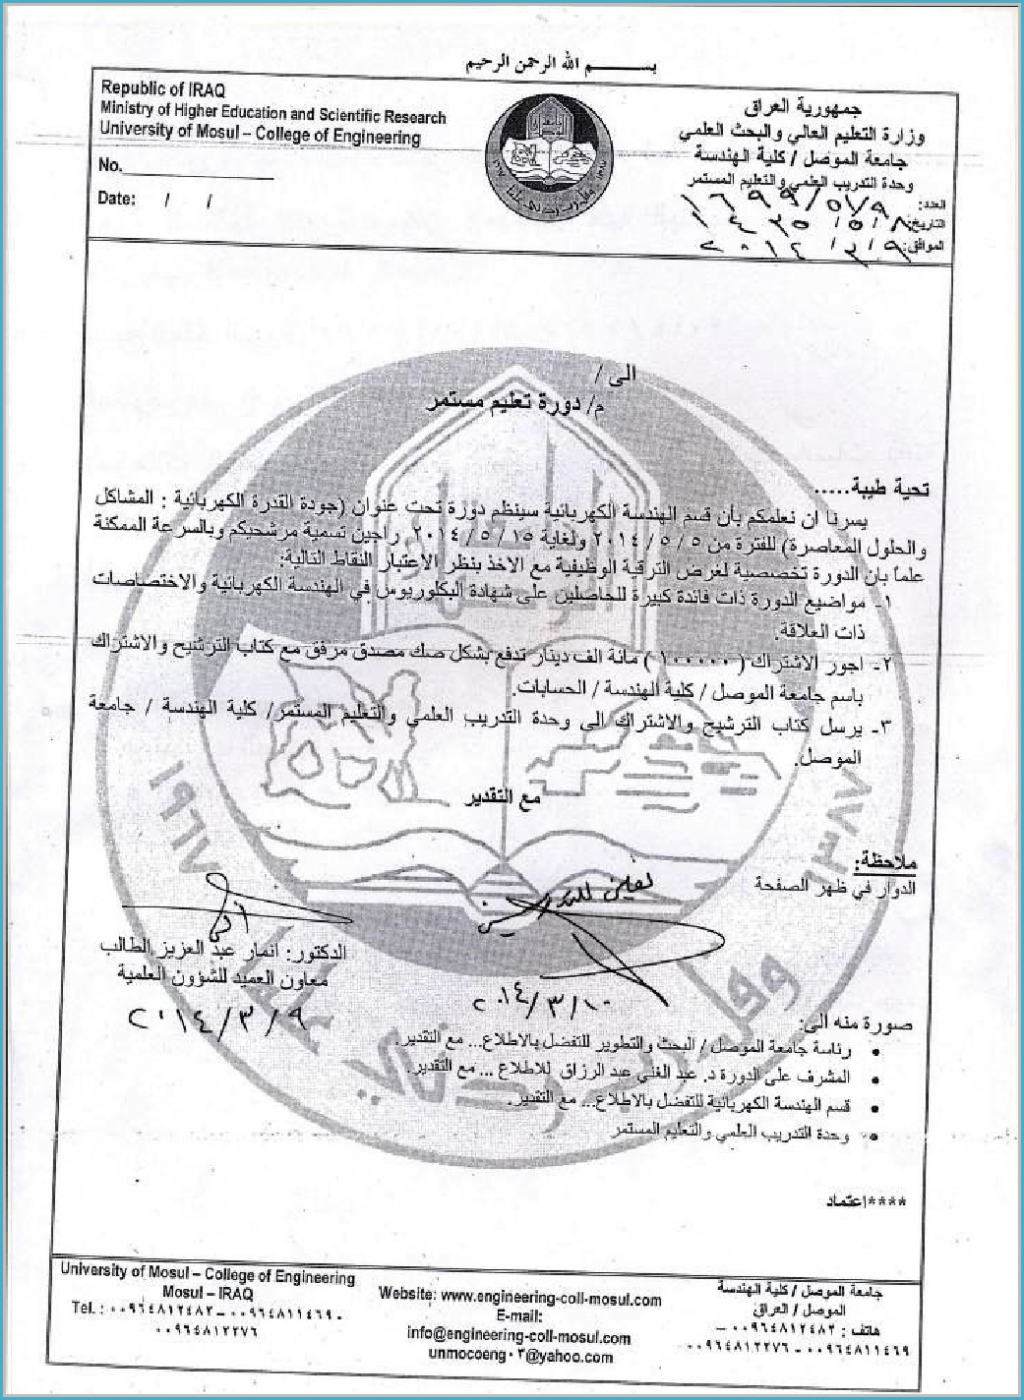 بســـــم الله الرحمن الرحيم
Republic of IRAQ
Ministry of Higher Education and Scientific Research
University of Mosul – College of Engineering
No.
Date: / /
جمهورية العراق
وزارة التعليم العالي والبحث العلمي
جامعة الموصل / كلية الهندسة
وحدة التدريب العلمي والتعليم المستمر
العدد:
التاريخ: ١٤٣٥/٥/٨
الموافق: ٢٠١٤/٣/٩
الى /
م/ دورة تعليم مستمر
تحية طيبة.....
يسرنا ان نعلمكم بأن قسم الهندسة الكهربائية سينظم دورة تحت عنوان (جودة القدرة الكهربائية : المشاكل
والحلول المعاصرة) للفترة من ٥ / ٥ / ٢٠١٤ ولغاية ١٥ / ٥ / ٢٠١٤، راجين تسمية مرشحيكم وبالسرعة الممكنة
علماً بان الدورة تخصصية لغرض الترقية الوظيفية مع الاخذ بنظر الاعتبار النقاط التالية:
١- مواضيع الدورة ذات فائدة كبيرة للحاصلين على شهادة البكلوريوس في الهندسة الكهربائية والاختصاصات
ذات العلاقة.
٢- اجور الاشتراك ( ١٠٠٠٠٠ ) مائة الف دينار تدفع بشكل صك مصدق مرفق مع كتاب الترشيح والاشتراك
باسم جامعة الموصل / كلية الهندسة / الحسابات.
٣- يرسل كتاب الترشيح والاشتراك الى وحدة التدريب العلمي والتعليم المستمر/ كلية الهندسة / جامعة
الموصل.
مع التقدير
ملاحظة:
الدوار في ظهر الصفحة
الدكتور: انمار عبد العزيز الطالب
معاون العميد للشؤون العلمية
٢٠١٤/٣/٩
٢٠١٤/٣/١٠
صورة منه الى:
• رئاسة جامعة الموصل / البحث والتطوير للتفضل بالاطلاع... مع التقدير.
• المشرف على الدورة د. عبد الغني عبد الرزاق للاطلاع ... مع التقدير.
• قسم الهندسة الكهربائية للتفضل بالاطلاع... مع التقدير.
• وحدة التدريب العلمي والتعليم المستمر
****اعتماد
University of Mosul – College of Engineering
Mosul – IRAQ
Tel. : ٠٠٩٦٤٨١٢٤٨٢ – ٠٠٩٦٤٨١١٤٦٩ -
٠٠٩٦٤٨١٢٢٧٦
Website: www.engineering-coll-mosul.com
E-mail:
info@engineering-coll-mosul.com
unmocoeng٠٢@yahoo.com
جامعة الموصل / كلية الهندسة
الموصل / العراق
هاتف : ٠٠٩٦٤٨١٢٤٨٢ –
٠٠٩٦٤٨١٢٢٧٦ – ٠٠٩٦٤٨١١٤٦٩
١٣٨٧
١٩٦٧